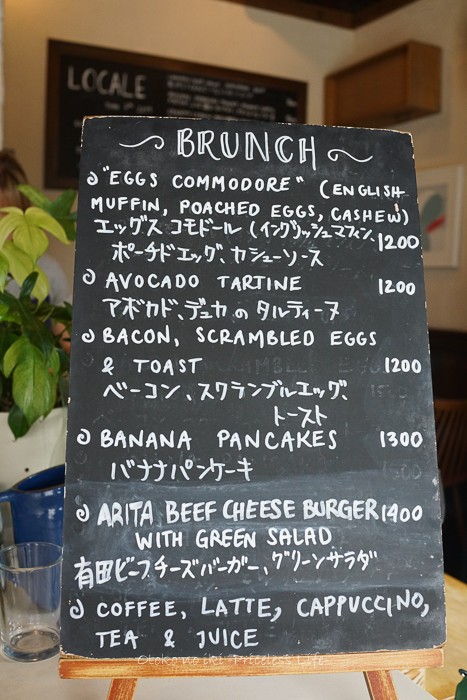 LOCALE
BRUNCH
"EGGS COMMODORE" (ENGLISH
MUFFIN, POACHED EGGS, CASHEW)
エッグスコモドール(イングリッシュマフィン、1200
ポーチドエッグ、カシューソース
AVOCADO TARTINE 1200
アボカド、デュカのタルティーヌ
BACON, SCRAMBLED EGGS
& TOAST 1200
ベーコン、スクランブルエッグ、
トースト
BANANA PANCAKES 1300
バナナパンケーキ
ARITA BEEF CHEESE BURGER 1900
WITH GREEN SALAD
有田ビーフチーズバーガー、グリーンサラダ
COFFEE, LATTE, CAPPUCCINO,
TEA & JUICE
Otoko no iki -Priceless Life-